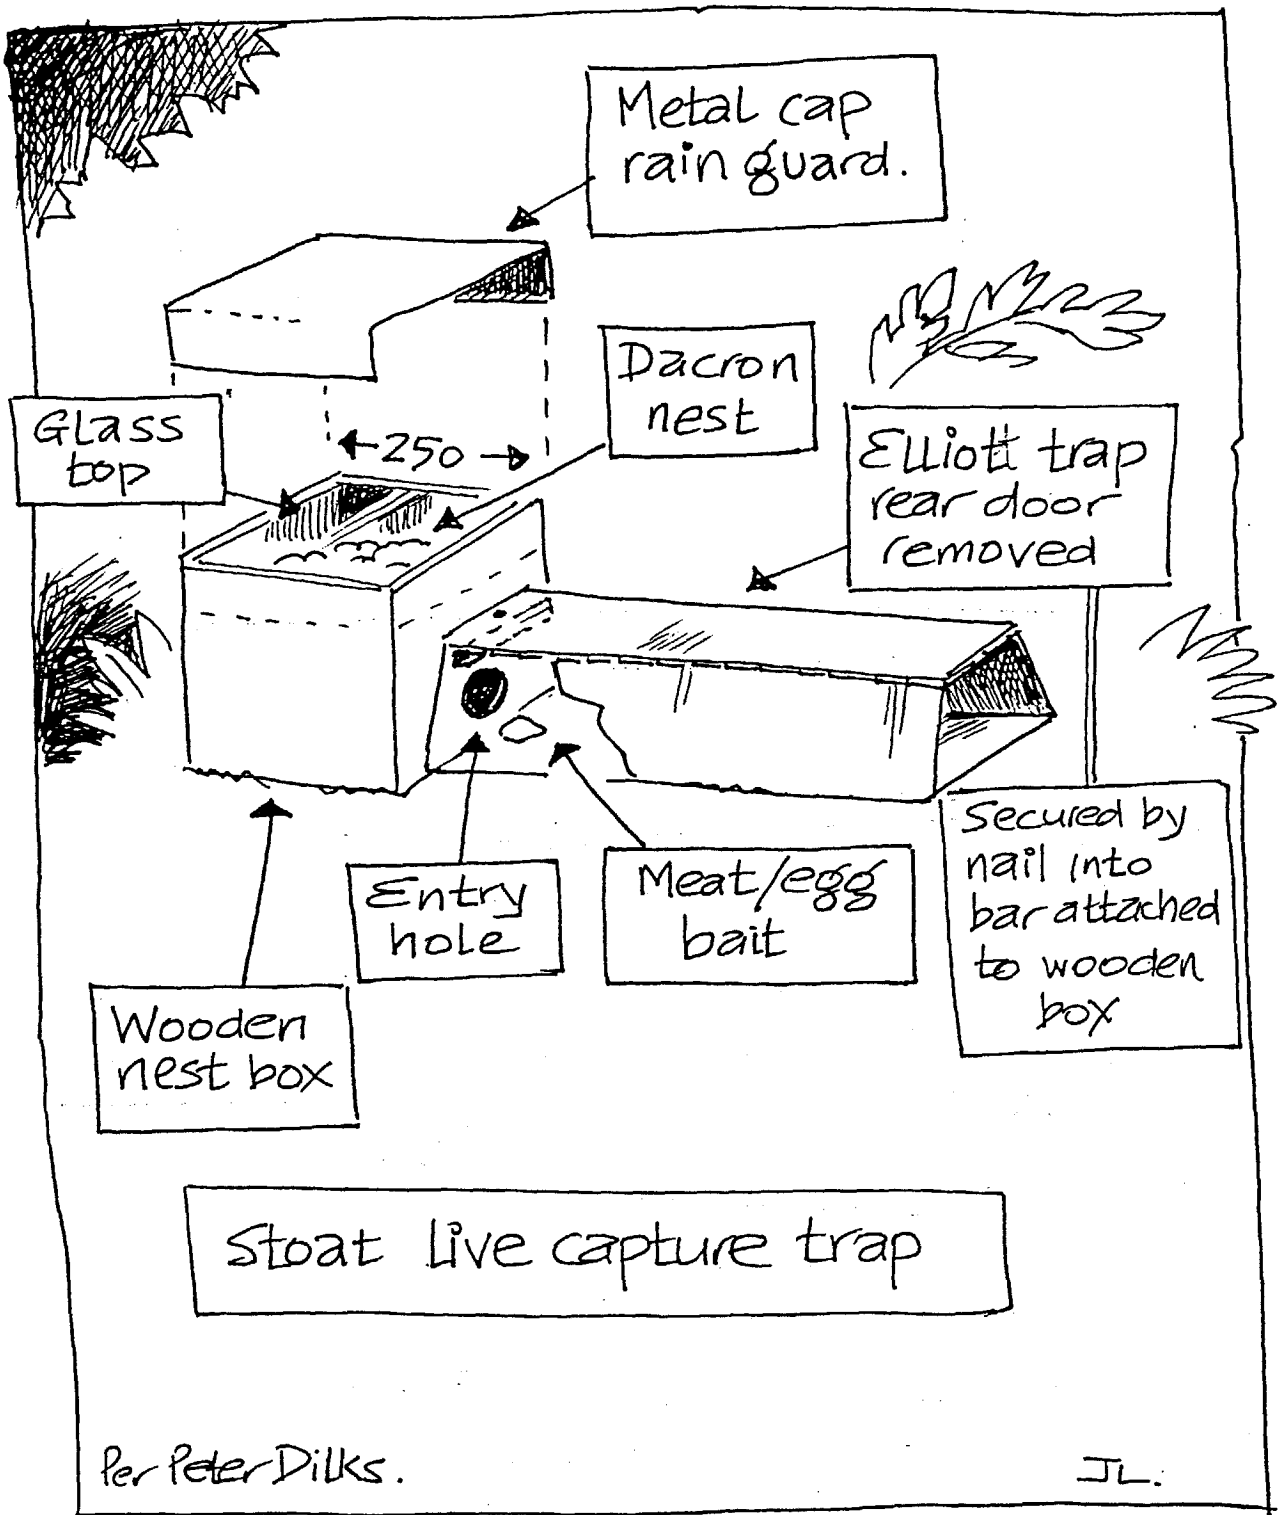 Metal cap
rain guard.
Dacron
nest
Glass
top
250
Elliott trap
rear door
removed
Secured by
nail into
bar attached
to wooden
box
Entry
hole
Meat/egg
bait
Wooden
nest box
Stoat live capture trap
Per Peter Dilks.
JL.